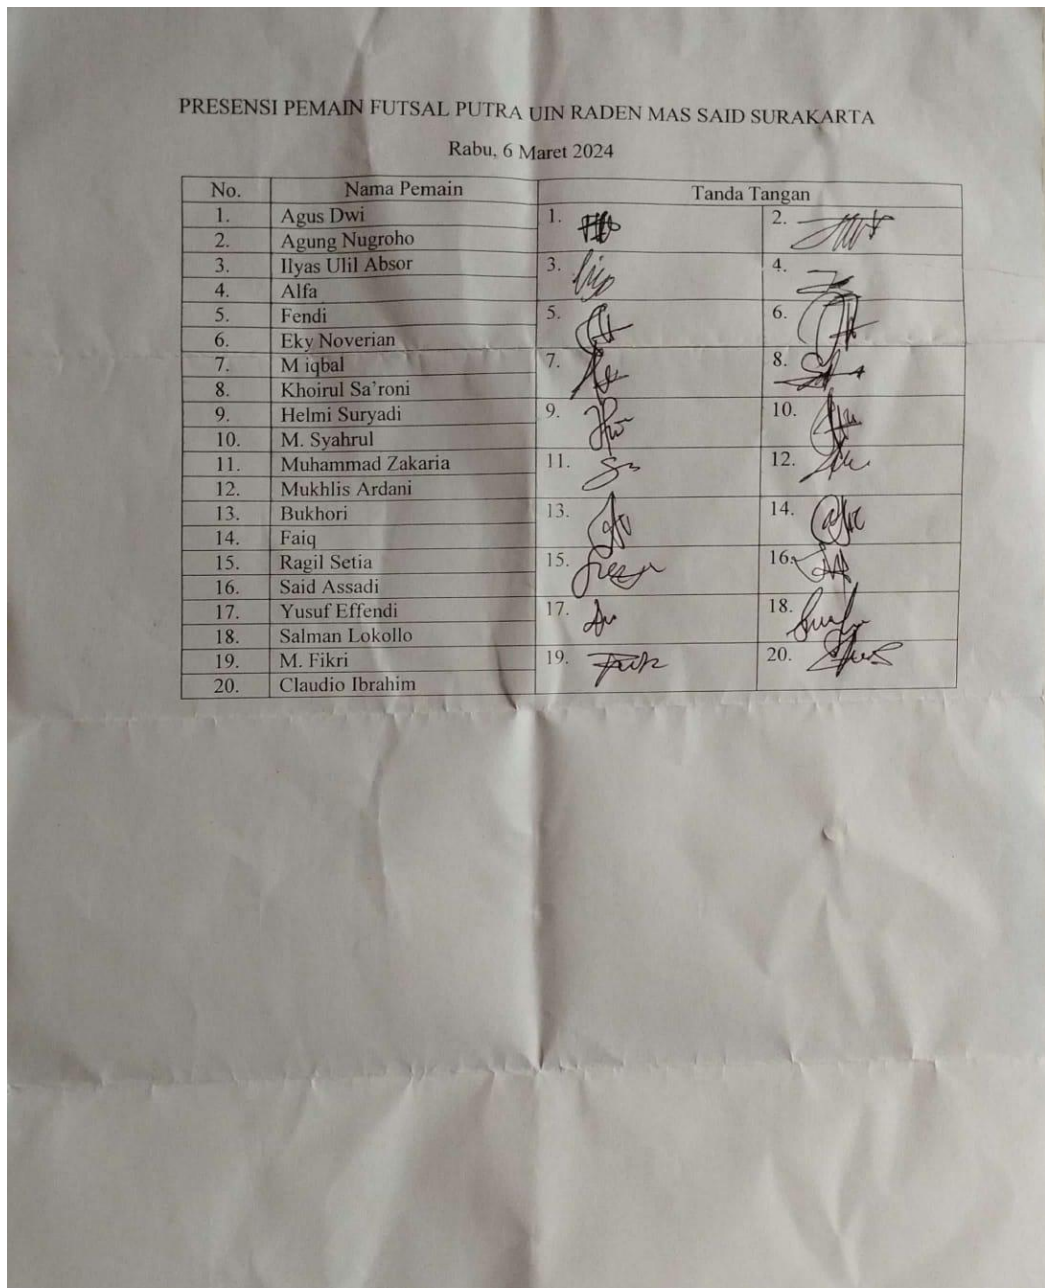 PRESENSI PEMAIN FUTSAL PUTRA UIN RADEN MAS SAID SURAKARTA
Rabu, 6 Maret 2024
No. Nama Pemain Tanda Tangan
1. Agus Dwi 1. 2.
2. Agung Nugroho
3. Ilyas Ulil Absor 3. 4.
4. Alfa
5. Fendi 5. 6.
6. Eky Noverian
7. M iqbal 7. 8.
8. Khoirul Sa'roni
9. Helmi Suryadi 9. 10.
10. M. Syahrul
11. Muhammad Zakaria 11. 12.
12. Mukhlis Ardani
13. Bukhori 13. 14.
14. Faiq
15. Ragil Setia 15. 16.
16. Said Assadi
17. Yusuf Effendi 17. 18.
18. Salman Lokollo
19. M. Fikri 19. 20.
20. Claudio Ibrahim